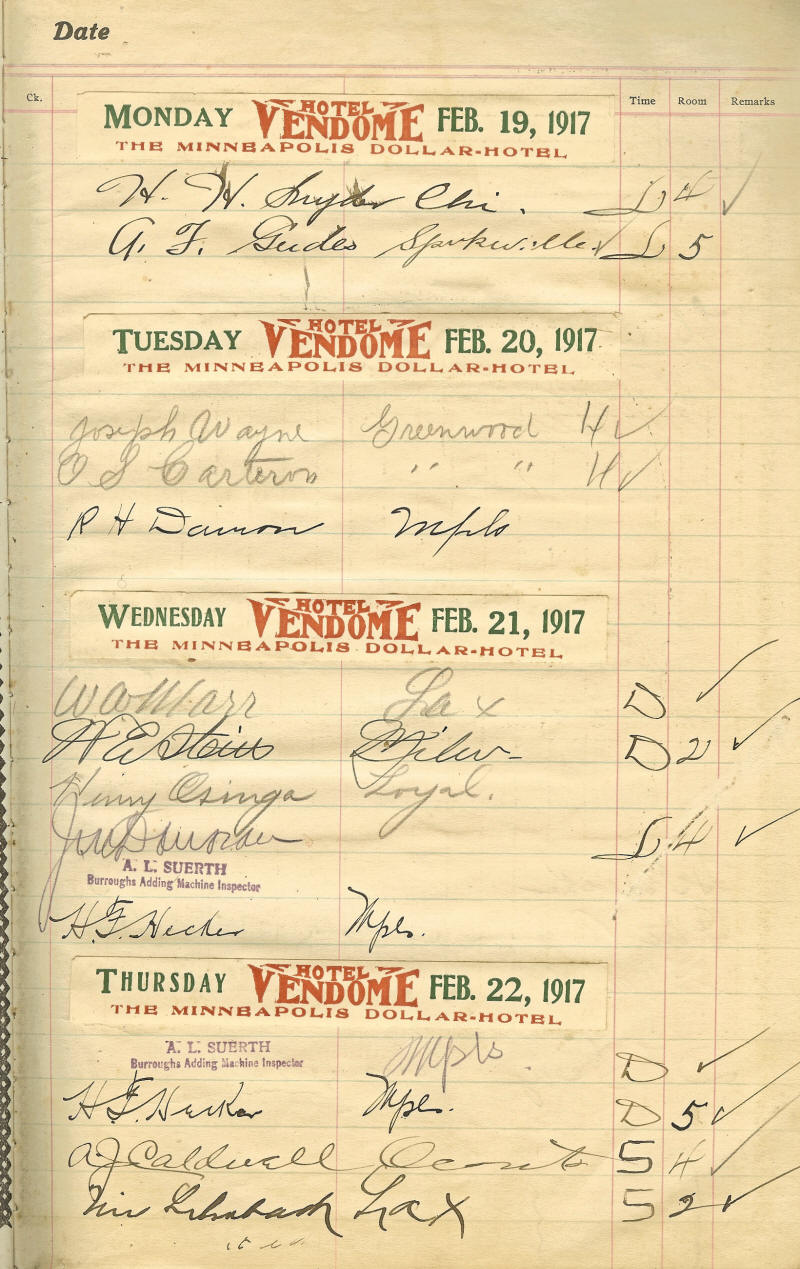 Date
Ck. Time Room Remarks
MONDAY HOTEL VENDOME FEB. 19, 1917
THE MINNEAPOLIS DOLLAR-HOTEL
H. H. Snyder Chi. L 4 ✓
A. F. Gudes L 5
TUESDAY HOTEL VENDOME FEB. 20, 1917
THE MINNEAPOLIS DOLLAR-HOTEL
Joseph Wayne Greenwood 4 ✓
O S Carteron " " 4 ✓
R H Damon Mpls
WEDNESDAY HOTEL VENDOME FEB. 21, 1917
THE MINNEAPOLIS DOLLAR-HOTEL
W W Marr Lax D ✓
H E Milw- D 2 ✓
Henry Osinga Loyal.
L 4 ✓
A. L. SUERTH
Burroughs Adding Machine Inspector
H. F. Hecker Mpls.
THURSDAY HOTEL VENDOME FEB. 22, 1917
THE MINNEAPOLIS DOLLAR-HOTEL
A. L. SUERTH Mpls. D ✓
Burroughs Adding Machine Inspector
H. F. Hecker Mpls. D 5 ✓
A J Caldwell Oconto S 4 ✓
Lax S 2 ✓